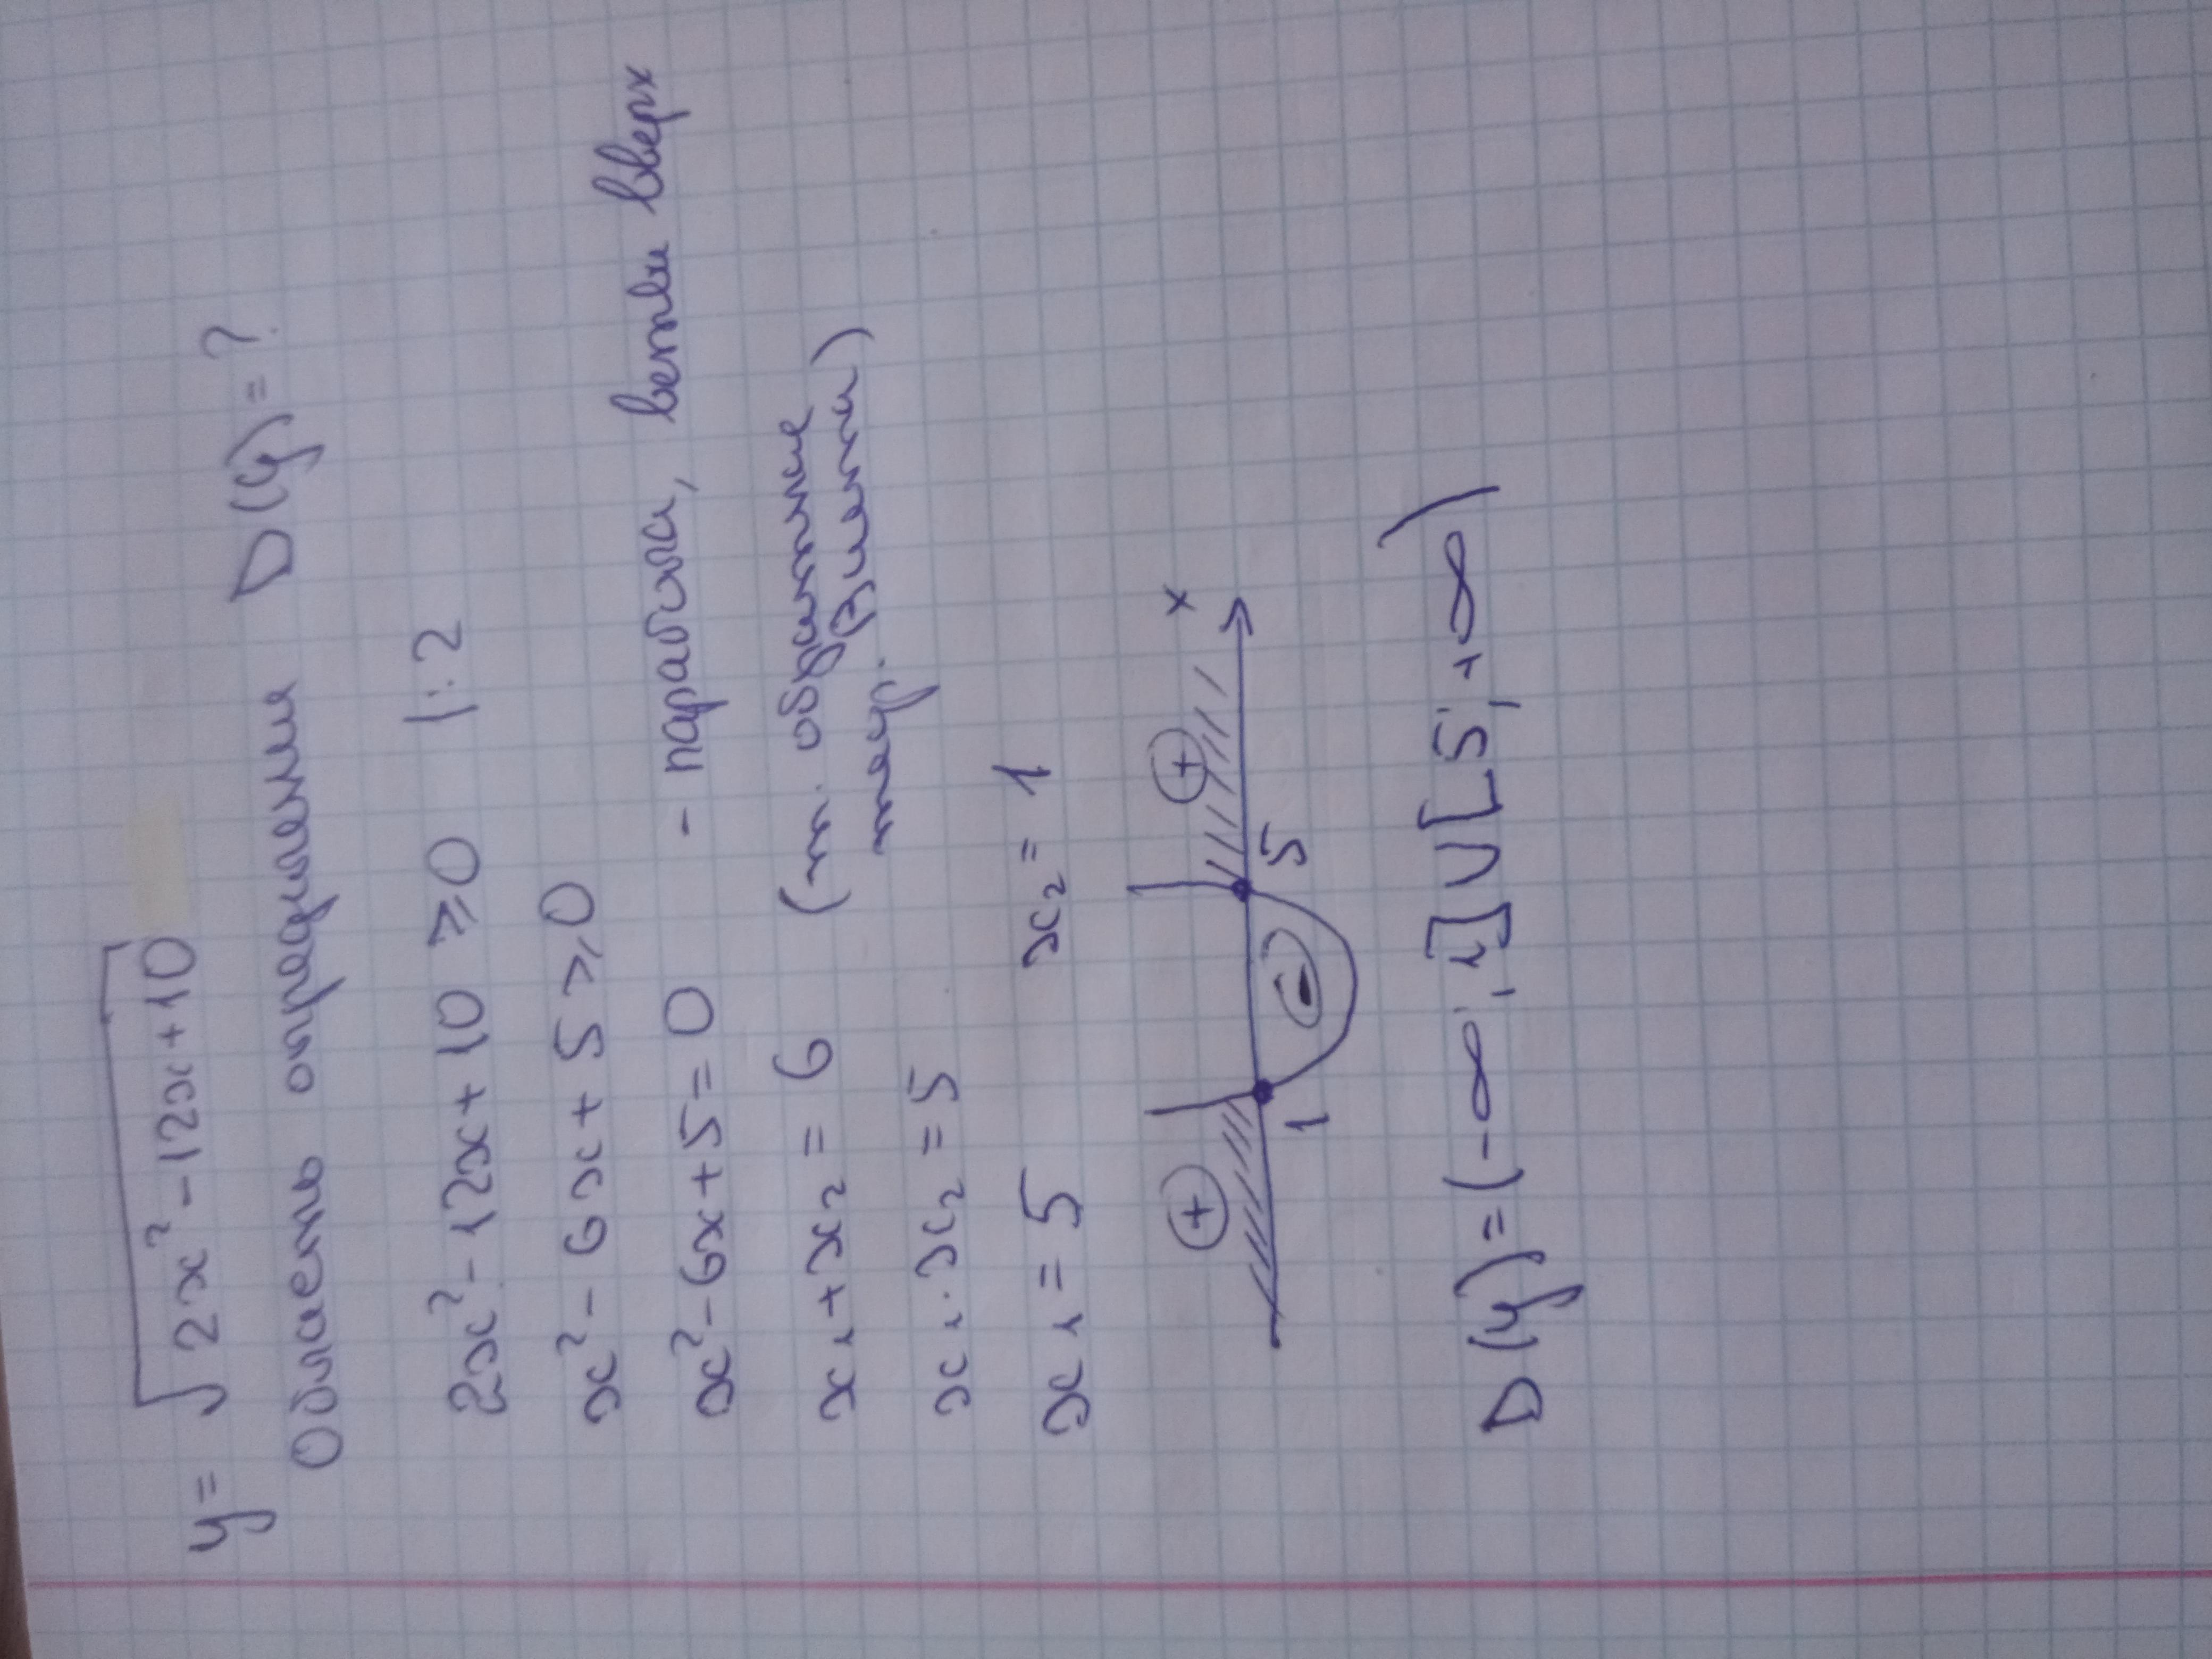 y = √2x² - 12x + 10
Область определения D(y) = ?
2x² - 12x + 10 ⩾ 0 |: 2
x² - 6x + 5 ⩾ 0
x² - 6x + 5 = 0 - парабола, ветви вверх
x₁ + x₂ = 6 (т. обратные
теор. Виета)
x₁ · x₂ = 5
x₁ = 5 x₂ = 1
+ - + x
1 5
D(y) = (-∞; 1] U [5; +∞)